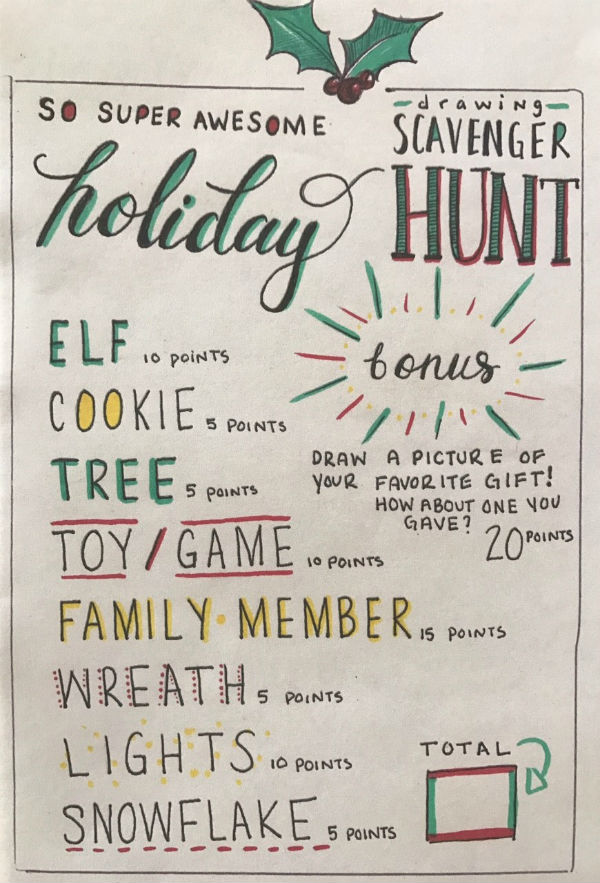 SO SUPER AWESOME
holiday
drawing
SCAVENGER
HUNT
ELF 10 POINTS
COOKIE 5 POINTS
TREE 5 POINTS
TOY/GAME 10 POINTS
FAMILY·MEMBER 15 POINTS
WREATH 5 POINTS
LIGHTS 10 POINTS
SNOWFLAKE 5 POINTS
bonus
DRAW A PICTURE OF
YOUR FAVORITE GIFT!
HOW ABOUT ONE YOU
GAVE?
20 POINTS
TOTAL